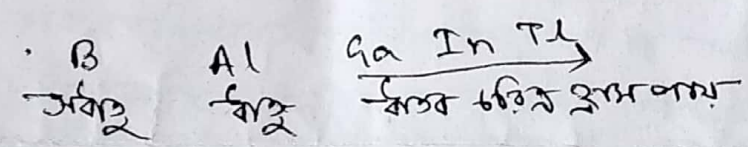 B Al Ga In Tl
অধাতু ধাতু ধাতব চরিত্র হ্রাস পায়